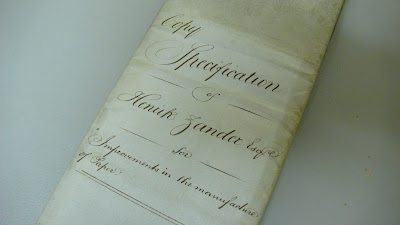 Copy
Specification
of
Henrik Zander Esqre
for
"Improvements in the manufacture
of Paper"